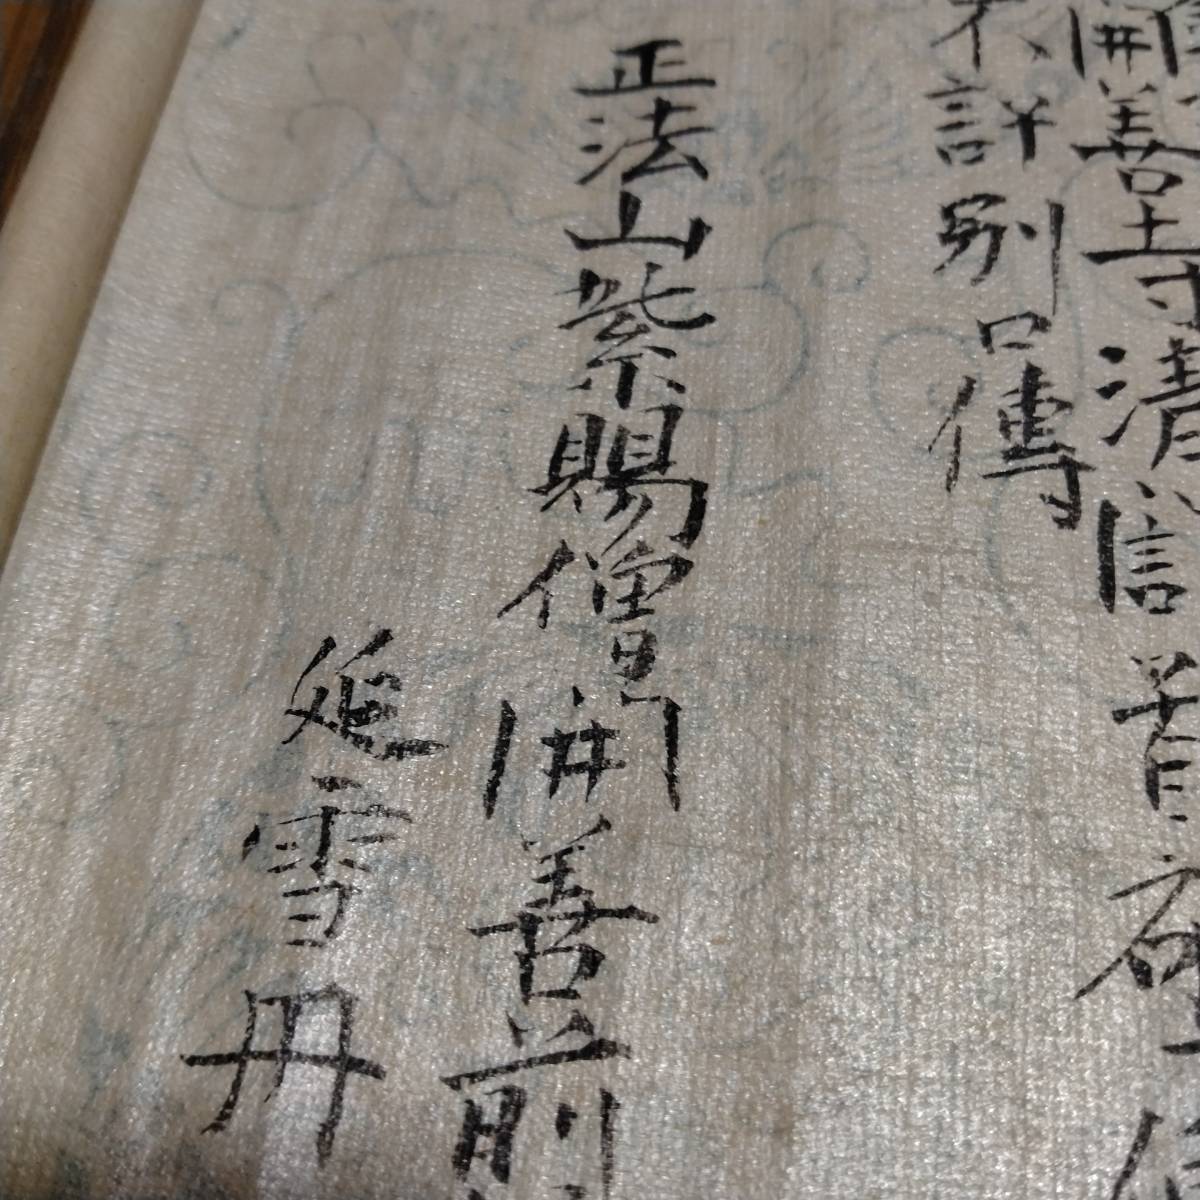 開善寺清信首座
不詳別口傳
正法山紫賜僧開善前
延雪冊